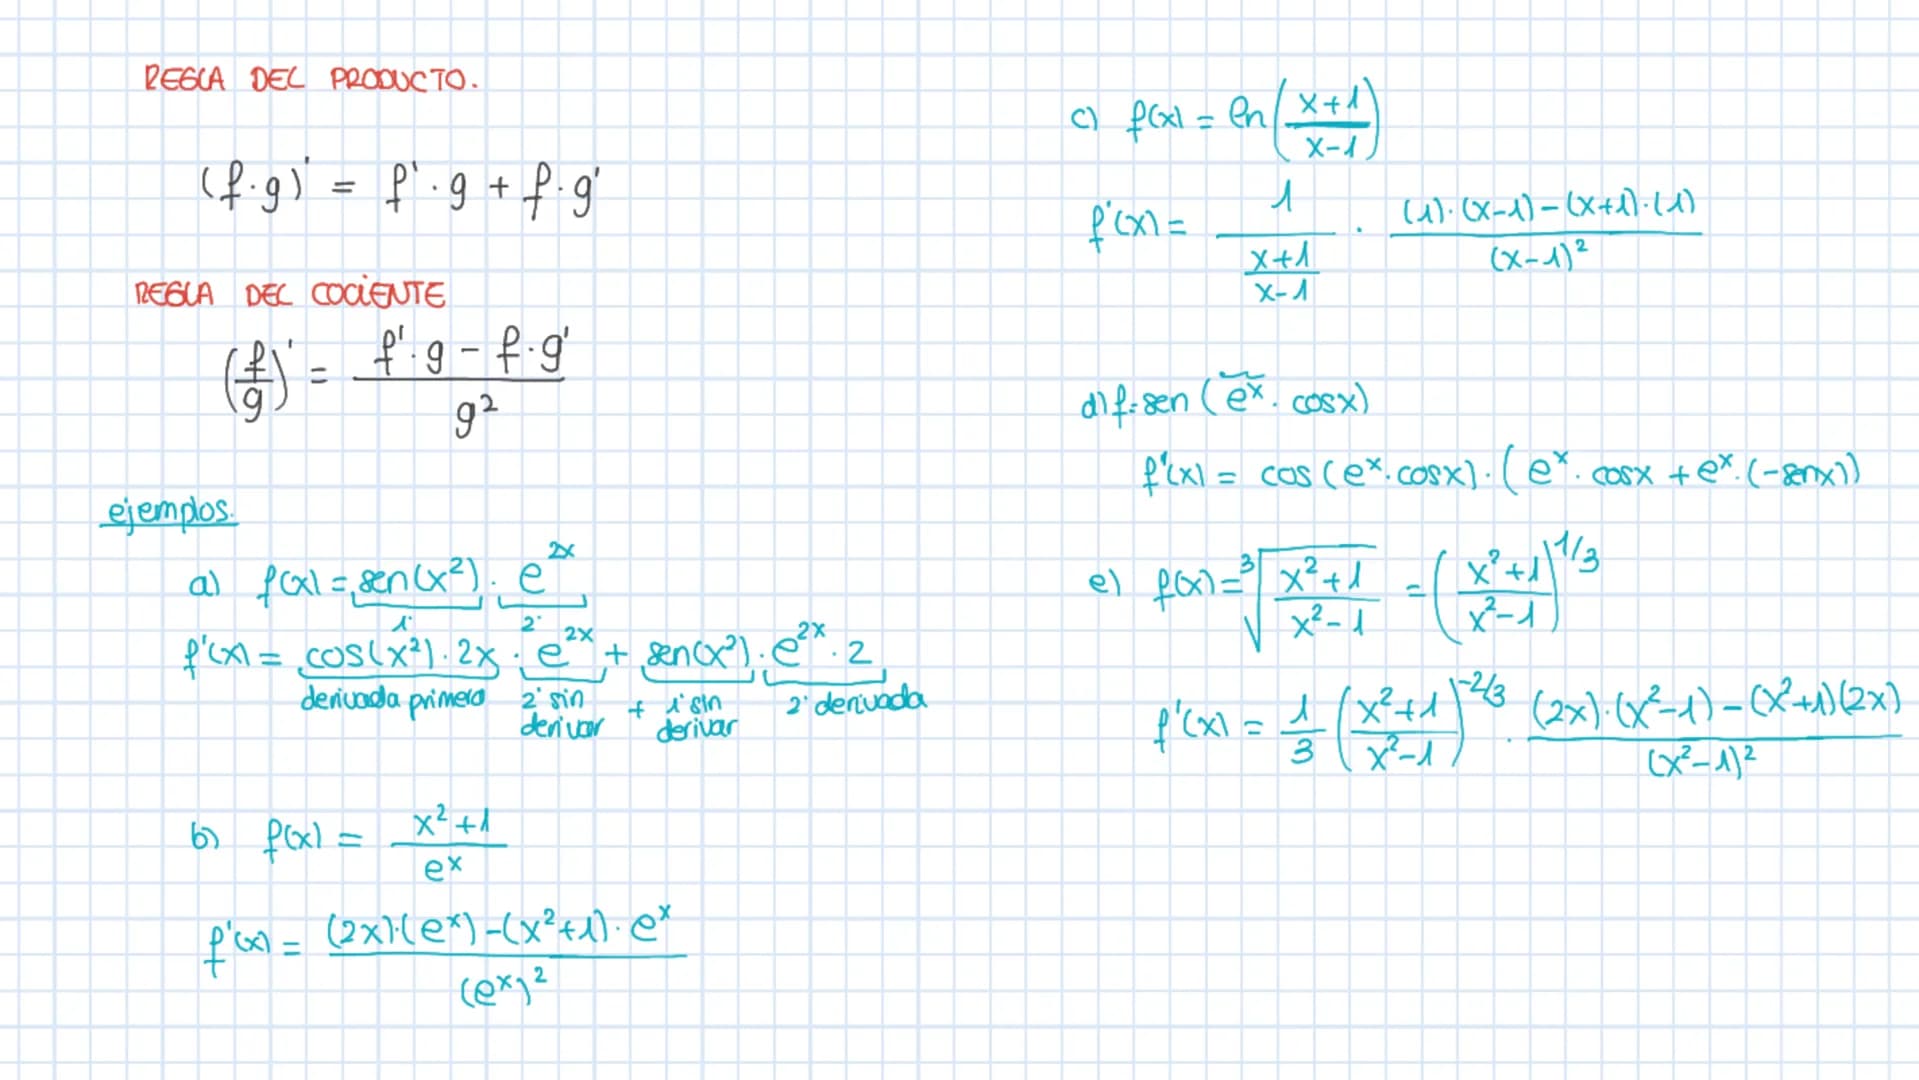 REGLA DEL PRODUCTO.
(f·g)' = f'·g + f·g'
REGLA DEL COCIENTE
(f/g)' = (f'·g − f·g')/g²
ejemplos.
a) f(x) = sen(x²) · e^(2x)
1· 2·
f'(x) = cos(x²)·2x · e^(2x) + sen(x²)·e^(2x)·2
derivada primera 2· sin derivar + 1· sin derivar 2· derivada
b) f(x) = (x²+1)/e^x
f'(x) = ((2x)·(e^x)−(x²+1)·e^x)/(e^x)²
c) f(x) = ln((x+1)/(x−1))
f'(x) = 1/((x+1)/(x−1)) · ((1)·(x−1)−(x+1)·(1))/(x−1)²
d) f=sen(e^x·cosx)
f'(x) = cos(e^x·cosx)·(e^x·cosx + e^x·(−senx))
e) f(x)=³√((x²+1)/(x²−1)) = ((x²+1)/(x²−1))^(1/3)
f'(x) = 1/3 ((x²+1)/(x²−1))^(−2/3) · ((2x)·(x²−1)−(x²+1)(2x))/(x²−1)²